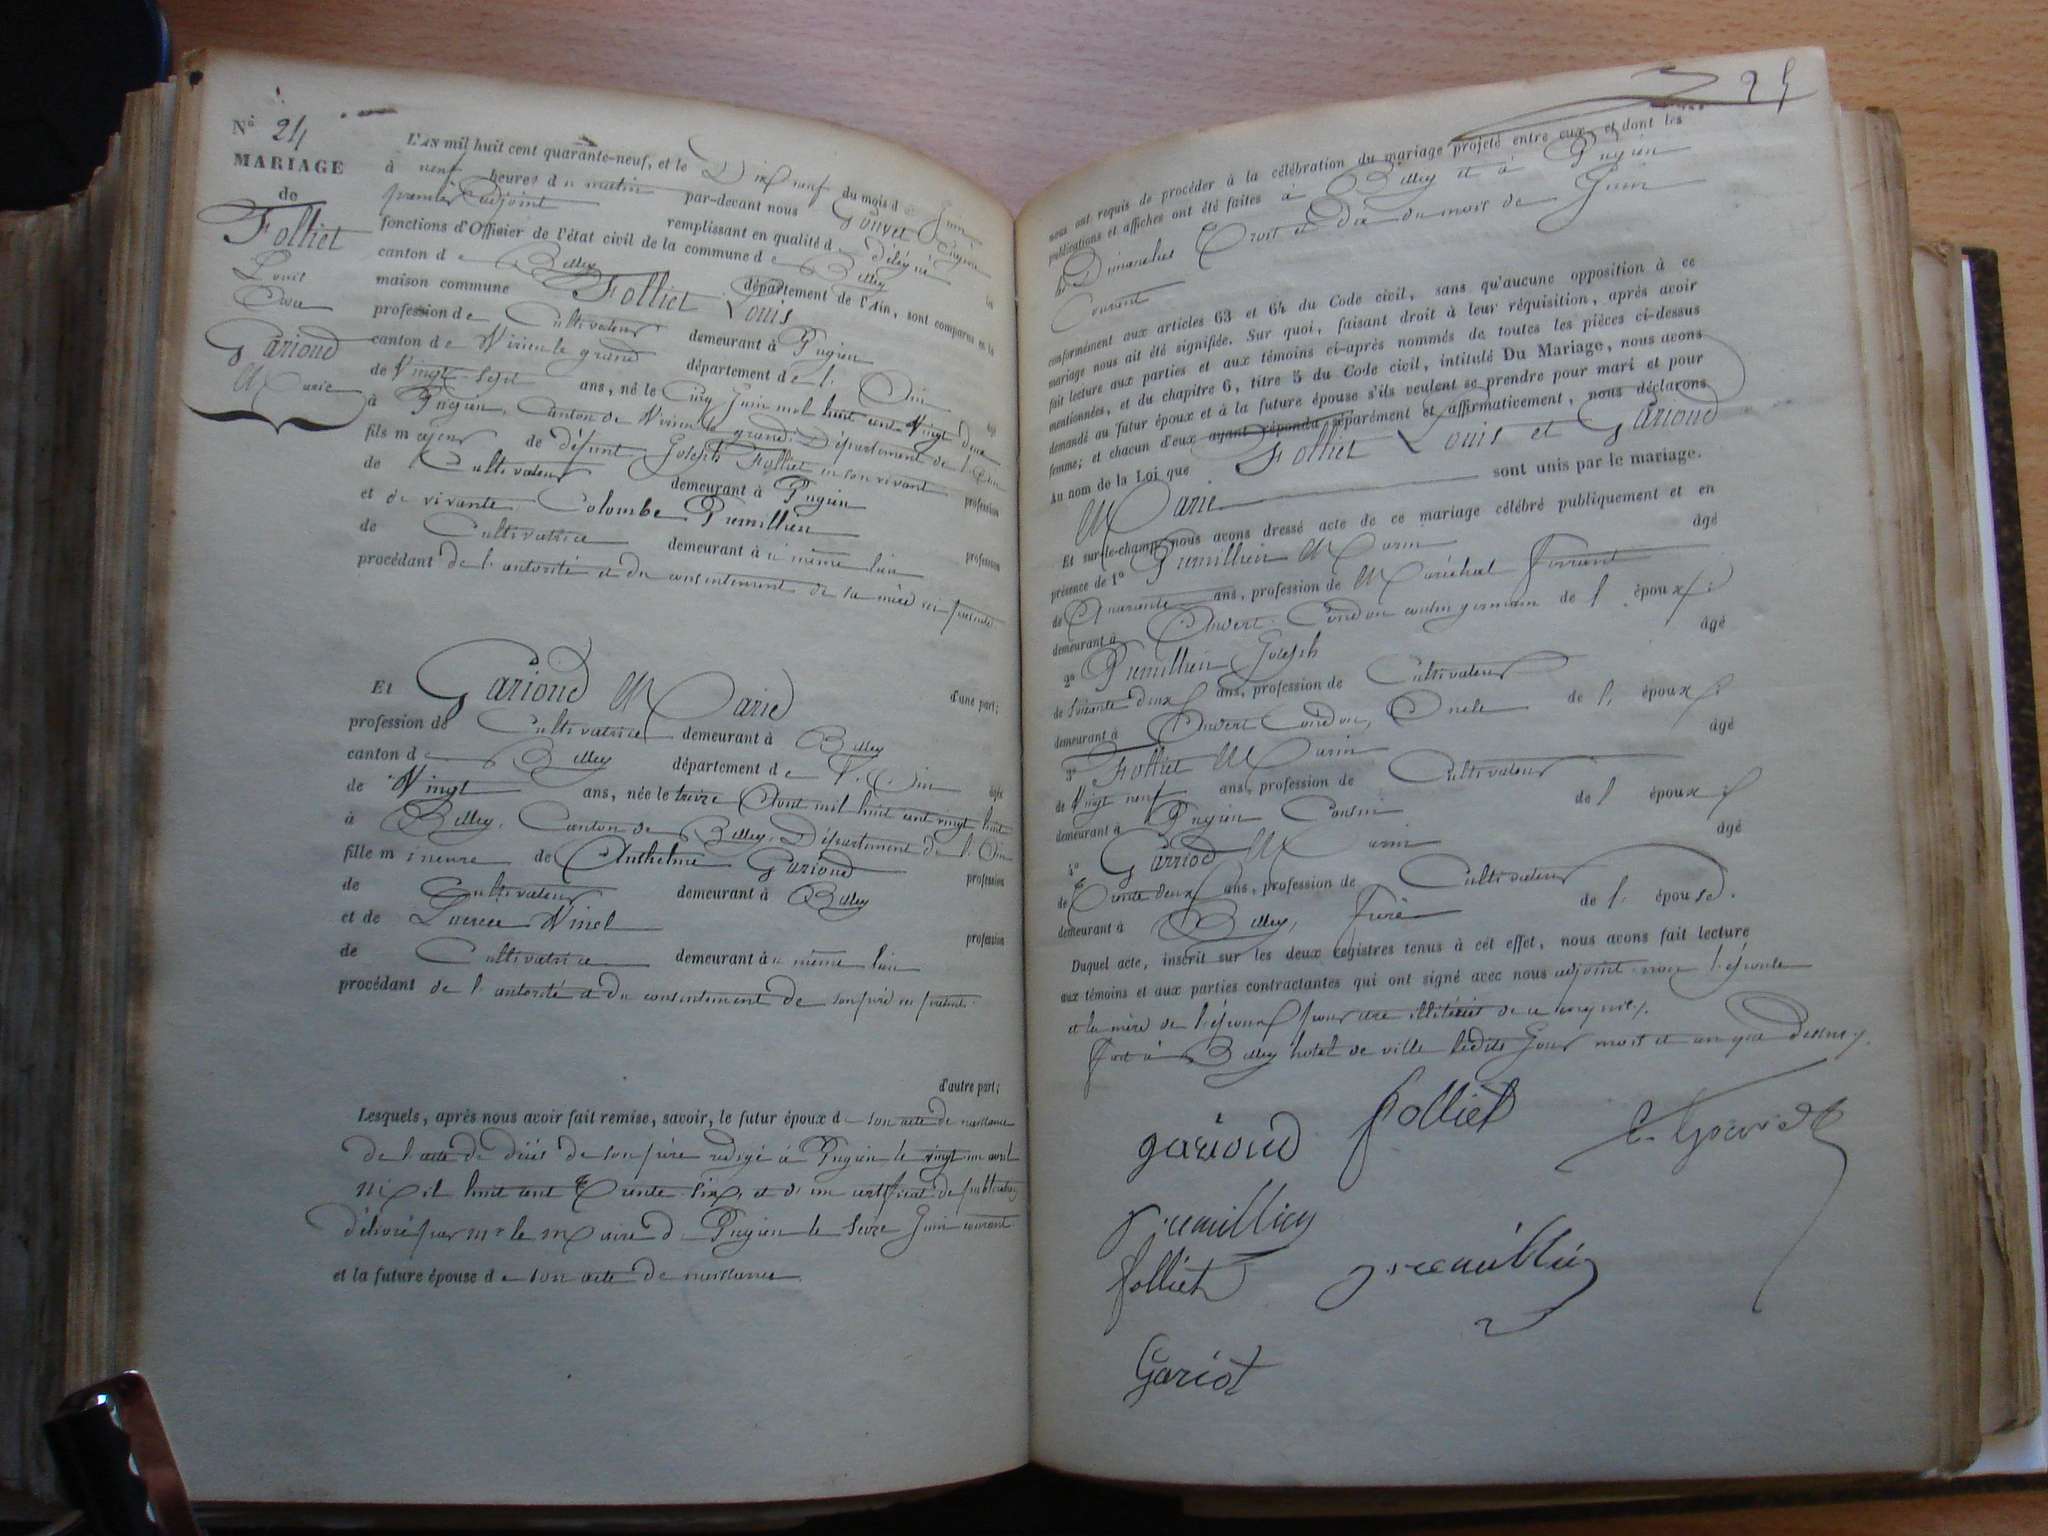 N° 24
MARIAGE
de
Folliet
Louis
Avec
Gariond
Marie
L'AN mil huit cent quarante-neuf, et le Dix neuf du mois de Juin
à neuf heures du matin par-devant nous Gouvet Eugène
premier adjoint remplissant en qualité de délégué les
fonctions d'Officier de l'état civil de la commune de Belley
canton de Belley département de l'Ain, sont comparus en la
maison commune Folliet Louis
profession de Cultivateur demeurant à Pugieu
canton de Virieu le grand département de l'Ain âgé
de Vingt-Sept ans, né le Cinq Juin mil huit cent Vingt deux
à Pugieu, Canton de Virieu le grand, Département de l'Ain
fils majeur de défunt Joseph Folliet en son vivant profession
de Cultivateur demeurant à Pugieu
et de vivante Colombe Premillieu profession
de Cultivatrice demeurant au même lieu
procédant de l'autorité et du consentement de sa mère ici présente.
d'une part;
Et Gariond Marie
profession de Cultivatrice demeurant à Belley
canton de Belley département de l'Ain âgée
de Vingt ans, née le treize Aout mil huit cent vingt huit
à Belley, Canton de Belley, Département de l'Ain
fille mineure de Anthelme Gariond profession
de Cultivateur demeurant à Belley
et de Lucrece Vinel profession
de Cultivatrice demeurant au même lieu
procédant de l'autorité et du consentement de son père ici présent.
d'autre part;
Lesquels, après nous avoir fait remise, savoir, le futur époux de son acte de naissance
de l'acte de décès de son père rédigé à Pugieu le vingt un avril
Mil huit cent Trente-six, et d'un certificat de publication
délivré par Mr le Maire de Pugieu le seize Juin courant
et la future épouse de son acte de naissance
25
nous ont requis de procéder à la célébration du mariage projeté entre eux, et dont les
publications et affiches ont été faites à Belley et à Pugieu
les Dimanches Trois et dix du mois de Juin
Courant
conformément aux articles 63 et 64 du Code civil, sans qu'aucune opposition à ce
mariage nous ait été signifiée. Sur quoi, faisant droit à leur réquisition, après avoir
fait lecture aux parties et aux témoins ci-après nommés de toutes les pièces ci-dessus
mentionnées, et du chapitre 6, titre 5 du Code civil, intitulé Du Mariage, nous avons
demandé au futur époux et à la future épouse s'ils veulent se prendre pour mari et pour
femme; et chacun d'eux ayant répondu séparément et affirmativement, nous déclarons
Au nom de la Loi que Folliet Louis et Gariond
Marie sont unis par le mariage.
Et sur-le-champ nous avons dressé acte de ce mariage célébré publiquement et en
présence de 1° Premillieu Marin âgé
de Quarante ans, profession de Maréchal Ferrant
demeurant à Andert-Condon cousin germain de l'époux;
2° Premillieu Joseph âgé
de soixante deux ans, profession de Cultivateur
demeurant à Andert Condon, Oncle de l'époux;
3° Folliet Marin âgé
de Vingt neuf ans, profession de Cultivateur
demeurant à Pugieu Cousin de l'époux;
4° Garriod Marin âgé
de Trente deux ans, profession de Cultivateur
demeurant à Belley, Frère de l'épouse.
Duquel acte, inscrit sur les deux registres tenus à cet effet, nous avons fait lecture
aux témoins et aux parties contractantes qui ont signé avec nous adjoint non l'épouse
et la mère de l'époux pour être illitérés de ce enquis.
Fait à Belley hotel de ville lesdits jour mois et an que dessus.
gariond
folliet
E. Gouvet
premillieu
folliet
premillieu
Gariot